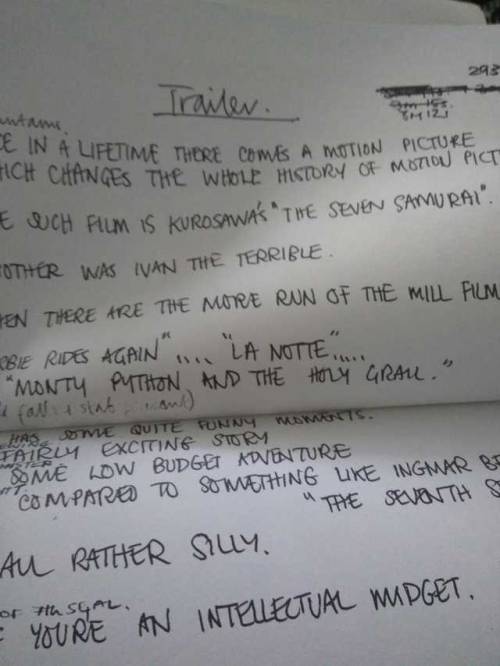 293
Trailer.
CE IN A LIFETIME THERE COMES A MOTION PICTURE
HICH CHANGES THE WHOLE HISTORY OF MOTION PICT
E SUCH FILM IS KUROSAWA'S "THE SEVEN SAMURAI".
OTHER WAS IVAN THE TERRIBLE.
EN THERE ARE THE MORE RUN OF THE MILL FILM
RBIE RIDES AGAIN".... "LA NOTTE".....
"MONTY PYTHON AND THE HOLY GRAIL."
HAS SOME QUITE FUNNY MOMENTS.
FAIRLY EXCITING STORY
SOME LOW BUDGET ADVENTURE
COMPARED TO SOMETHING LIKE INGMAR BE
"THE SEVENTH SE
ALL RATHER SILLY.
OF 7th SEAL.
E YOU'RE AN INTELLECTUAL MIDGET.